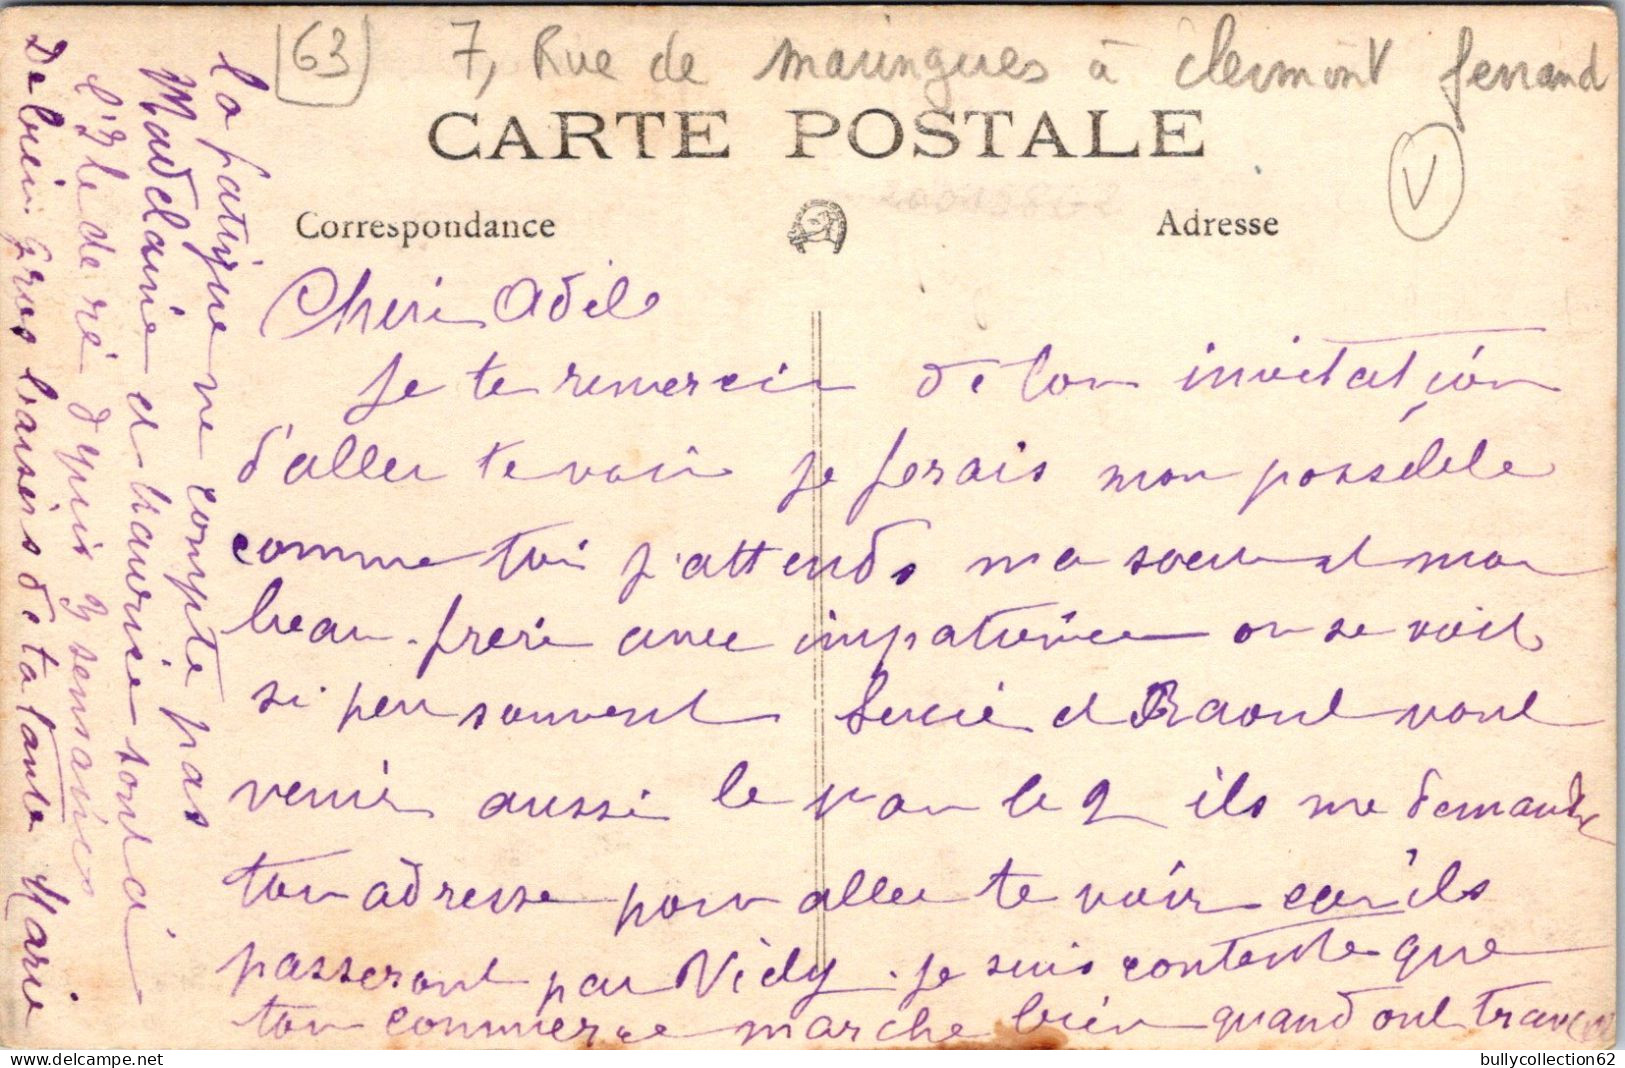 63
7, Rue de maringues à clermont ferrand
CARTE POSTALE
Correspondance
Adresse
V
Cheri Adele
je te remercie de ton invitation
d'aller te voir je ferais mon possible
comme toi j'attends ma soeur et mon
beau-frere avec impatience on se voit
si peu souvent Lucie et Raoul vont
venir aussi le 1 ou le 2 ils me demande
ton adresse pour aller te voir car ils
passeront par Vichy. je suis contente que
ton commerce marche bien quand ont travail
la fatigue ne compte pas
Madelaine et Maurice sont a
l'Ile de ré depuis 3 semaines
De bien gros baisers de ta tante Marie
bullycollection62